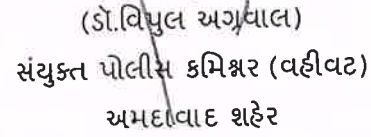 (ડૉ.વિપુલ અગ્રવાલ)
સંયુક્ત પોલીસ કમિશ્નર (વહીવટ)
અમદાવાદ શહેર